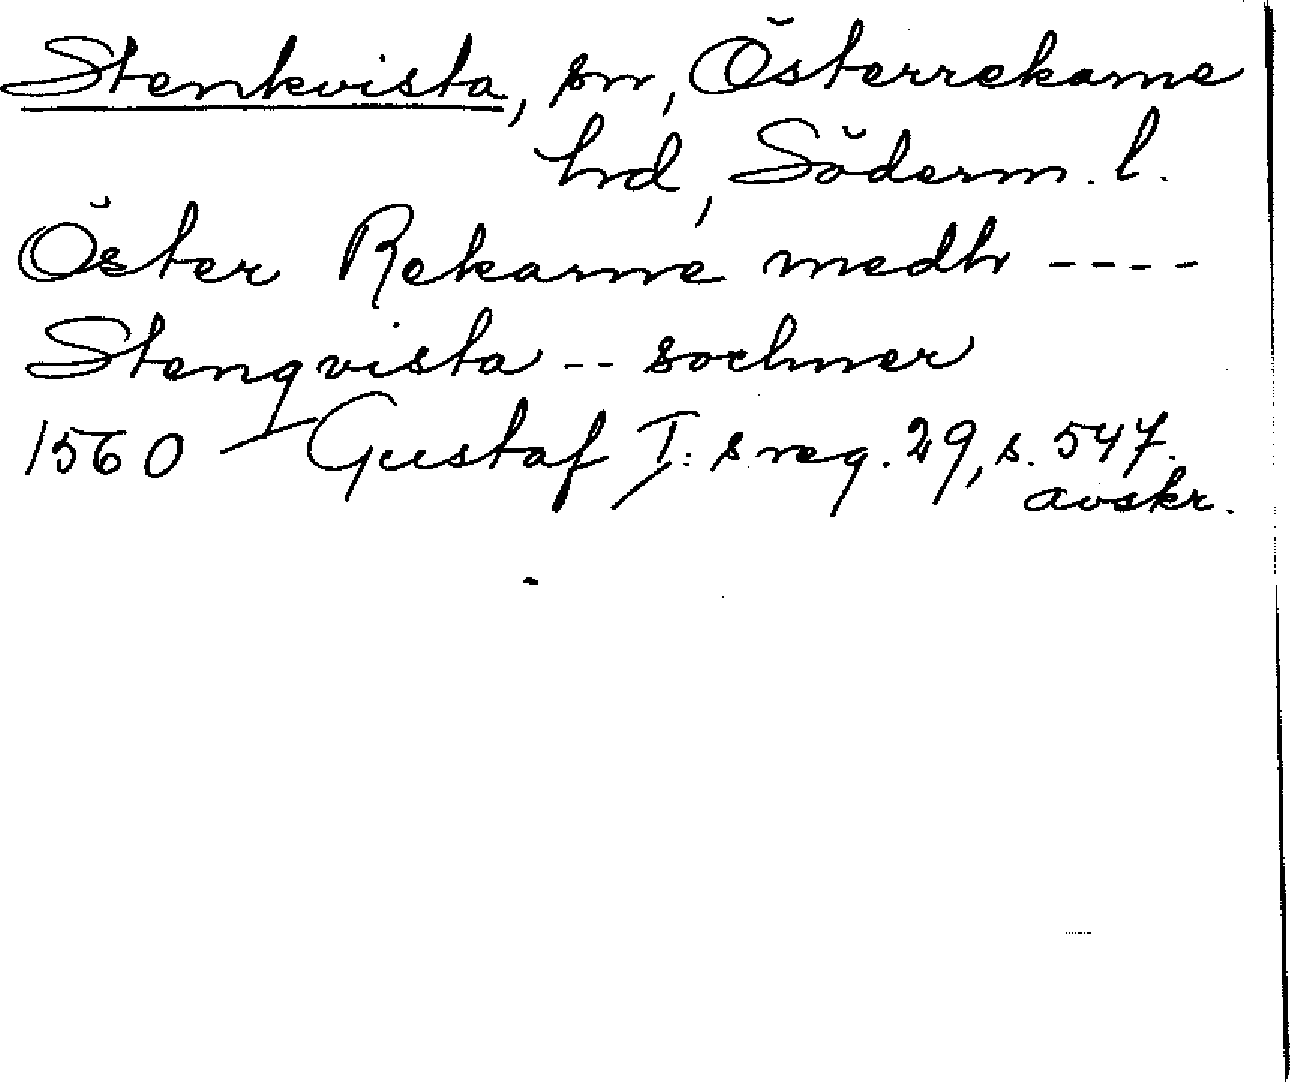 Stenkvista, sn, Österrekarne
hrd, Söderm. l.
Öster Rekarne medh ----
Stenqvista -- sochner
1560 — Gustaf I:s reg. 29, s. 547.
avskr.